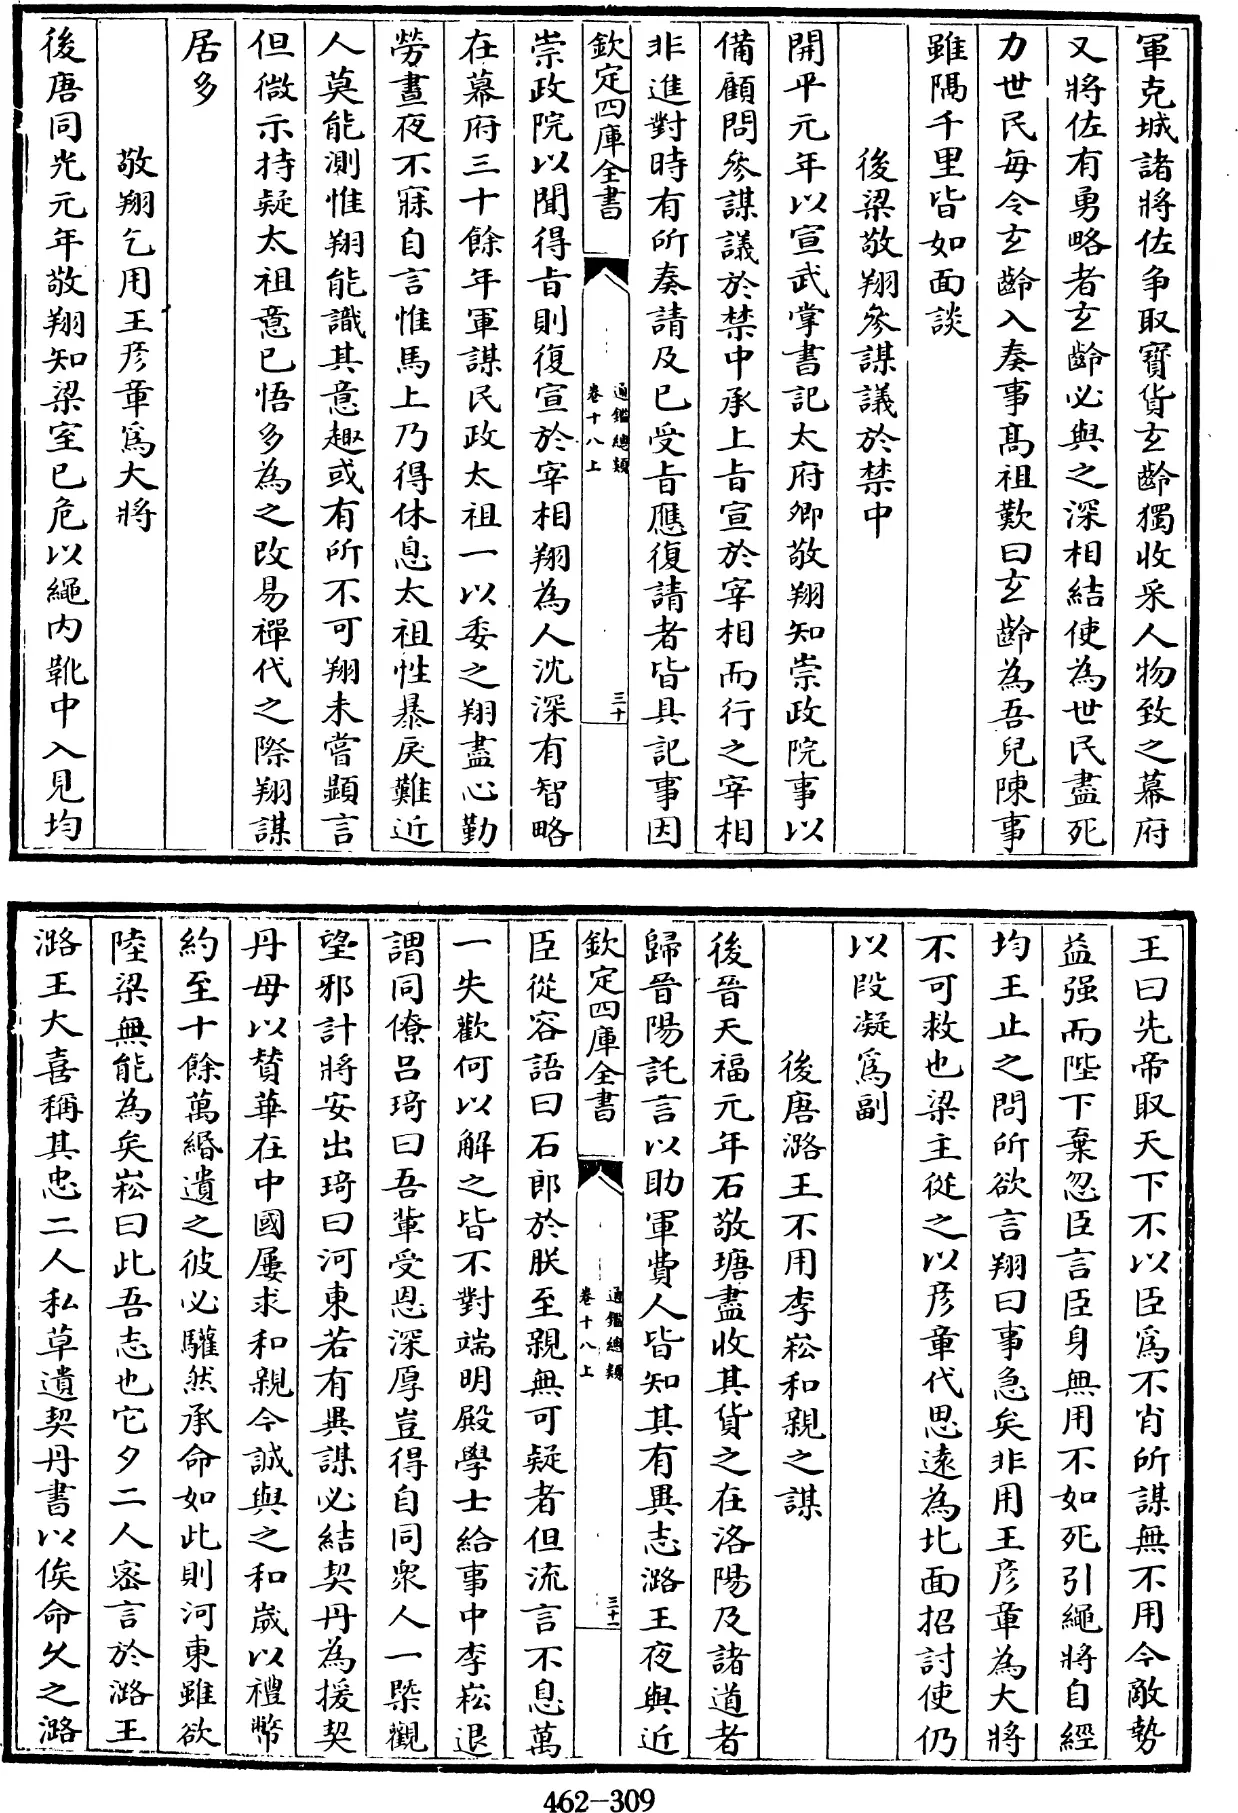 軍克城諸將佐争取寳貨玄齡獨收采人物致之幕府
又將佐有勇略者玄齡必與之深相結使為世民盡死
力世民每令玄齡入奏事髙祖歎曰玄齡為吾兒陳事
雖隔千里皆如面談
後梁敬翔參謀議於禁中
開平元年以宣武掌書記太府卿敬翔知崇政院事以
備顧問參謀議於禁中承上㫖宣於宰相而行之宰相
非進對時有所奏請及已受㫖應復請者皆具記事因
欽定四庫全書
通鑑總類
卷十八上
三十
崇政院以聞得㫖則復宣於宰相翔為人沈深有智略
在幕府三十餘年軍謀民政太祖一以委之翔盡心勤
勞晝夜不寐自言惟馬上乃得休息太祖性暴戾難近
人莫能測惟翔能識其意趣或有所不可翔未嘗顯言
但微示持疑太祖意已悟多為之改易禪代之際翔謀
居多
敬翔乞用王彦章爲大將
後唐同光元年敬翔知梁室已危以繩内靴中入見均
王曰先帝取天下不以臣爲不肖所謀無不用今敵勢
益强而陛下棄忽臣言臣身無用不如死引繩將自經
均王止之問所欲言翔曰事急矣非用王彦章為大將
不可救也梁主從之以彦章代思遠為北面招討使仍
以段凝爲副
後唐潞王不用李崧和親之謀
後晉天福元年石敬瑭盡收其貨之在洛陽及諸道者
歸晉陽託言以助軍費人皆知其有異志潞王夜與近
欽定四庫全書
通鑑總類
卷十八上
三十一
臣從容語曰石郎於朕至親無可疑者但流言不息萬
一失歡何以解之皆不對端明殿學士給事中李崧退
謂同僚吕琦曰吾輩受恩深厚豈得自同衆人一槩觀
望邪計將安出琦曰河東若有異謀必結契丹為援契
丹母以贊華在中國屢求和親今誠與之和歲以禮幣
約至十餘萬緡遺之彼必驩然承命如此則河東雖欲
陸梁無能為矣崧曰此吾志也它夕二人密言於潞王
潞王大喜稱其忠二人私草遺契丹書以俟命久之潞
462-309